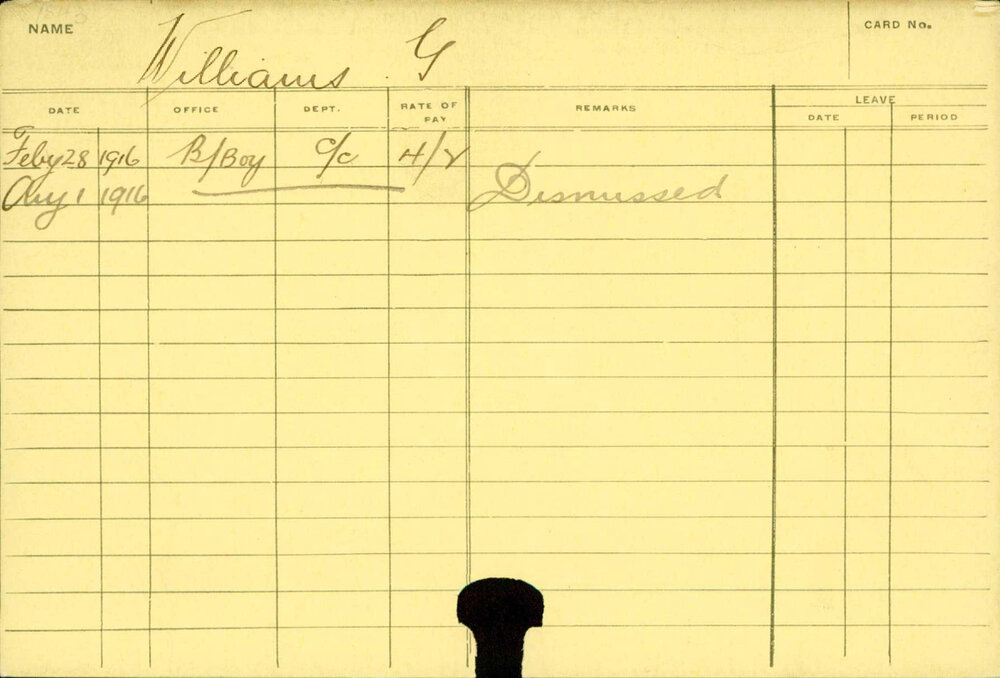 NAME Williams G CARD No.
DATE OFFICE DEPT. RATE OF PAY REMARKS LEAVE
DATE PERIOD
Feby 28 1916 B/Boy c/c 4/2
Aug 1 1916 Dismissed